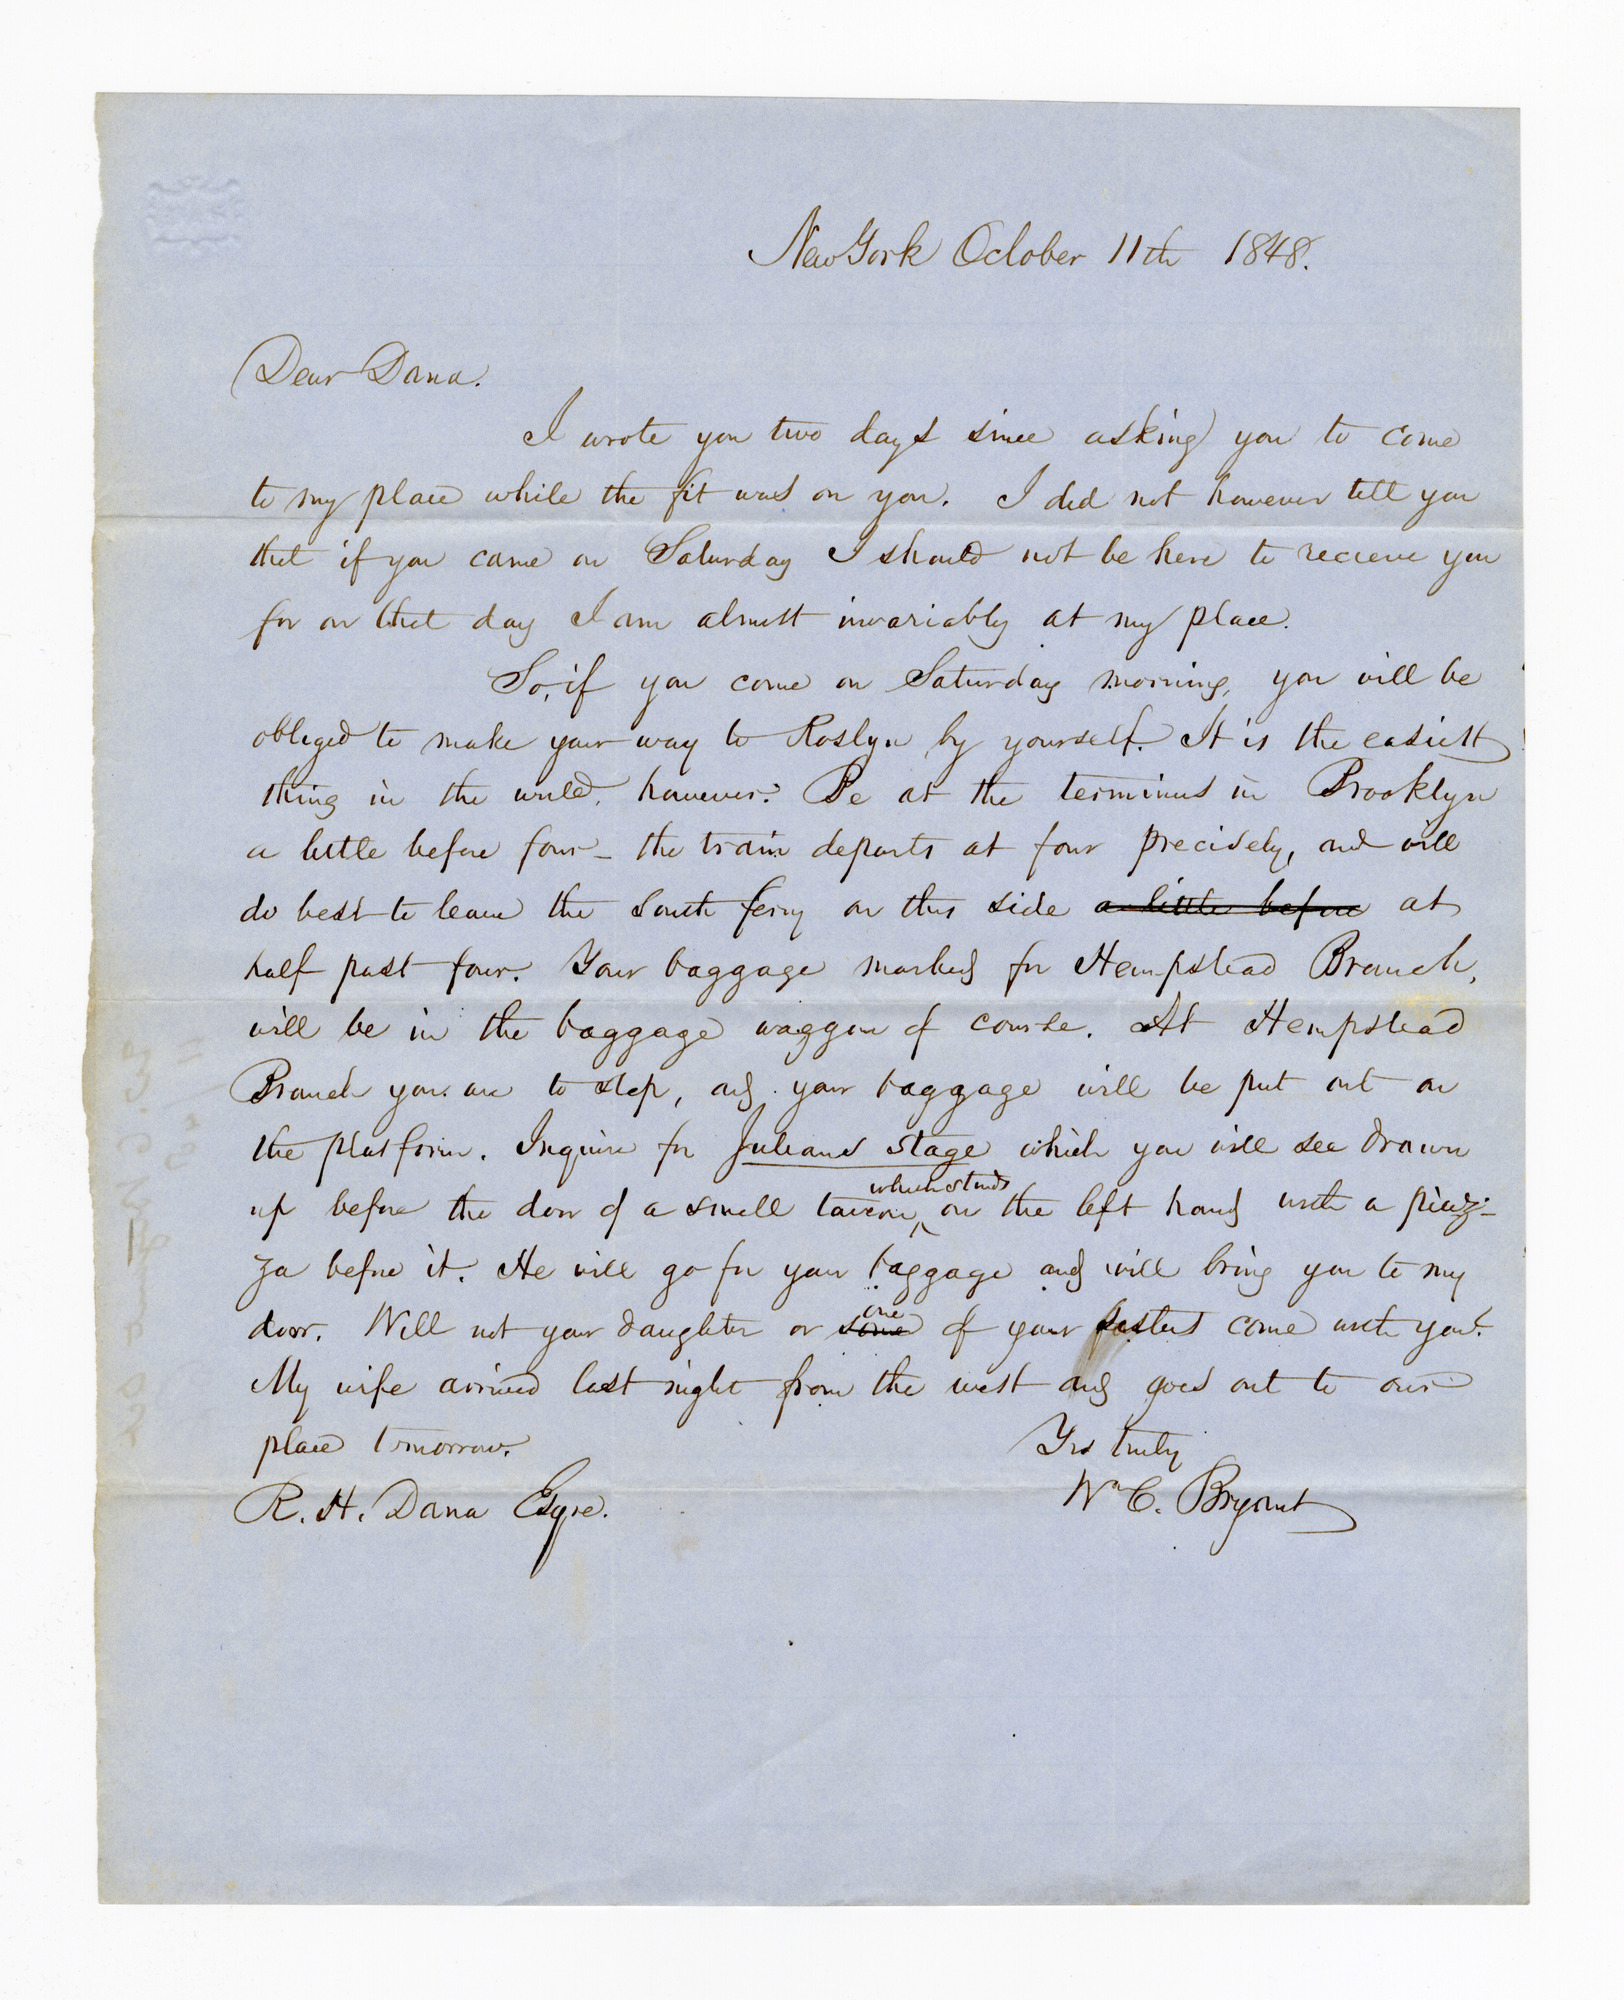 New York October 11th 1848.
Dear Dana.
I wrote you two days since asking you to come
to my place while the fit was on you. I did not however tell you
that if you came on Saturday I should not be here to recieve you
for on that day I am almost invariably at my place.
So, if you come on Saturday morning, you will be
obliged to make your way to Roslyn by yourself. It is the easiest
thing in the world, however. Be at the terminus in Brooklyn
a little before four – the train departs at four precisely, and will
do best to leave the South ferry on this side a little before at
half past four. Your baggage marked for Hempstead Branch,
will be in the baggage waggon of course. At Hempstead
Branch you are to stop, and your baggage will be put out on
the platform. Inquire for Julians stage which you will see drawn
up before the door of a small tavern, which stands on the left hand with a piaz-
za before it. He will go for your baggage and will bring you to my
door. Will not your daughter or some one of your sisters come with you?
My wife arrived last night from the west and goes out to our
place tomorrow.
Yrs truly
Wm C. Bryant
R. H. Dana Esqre.